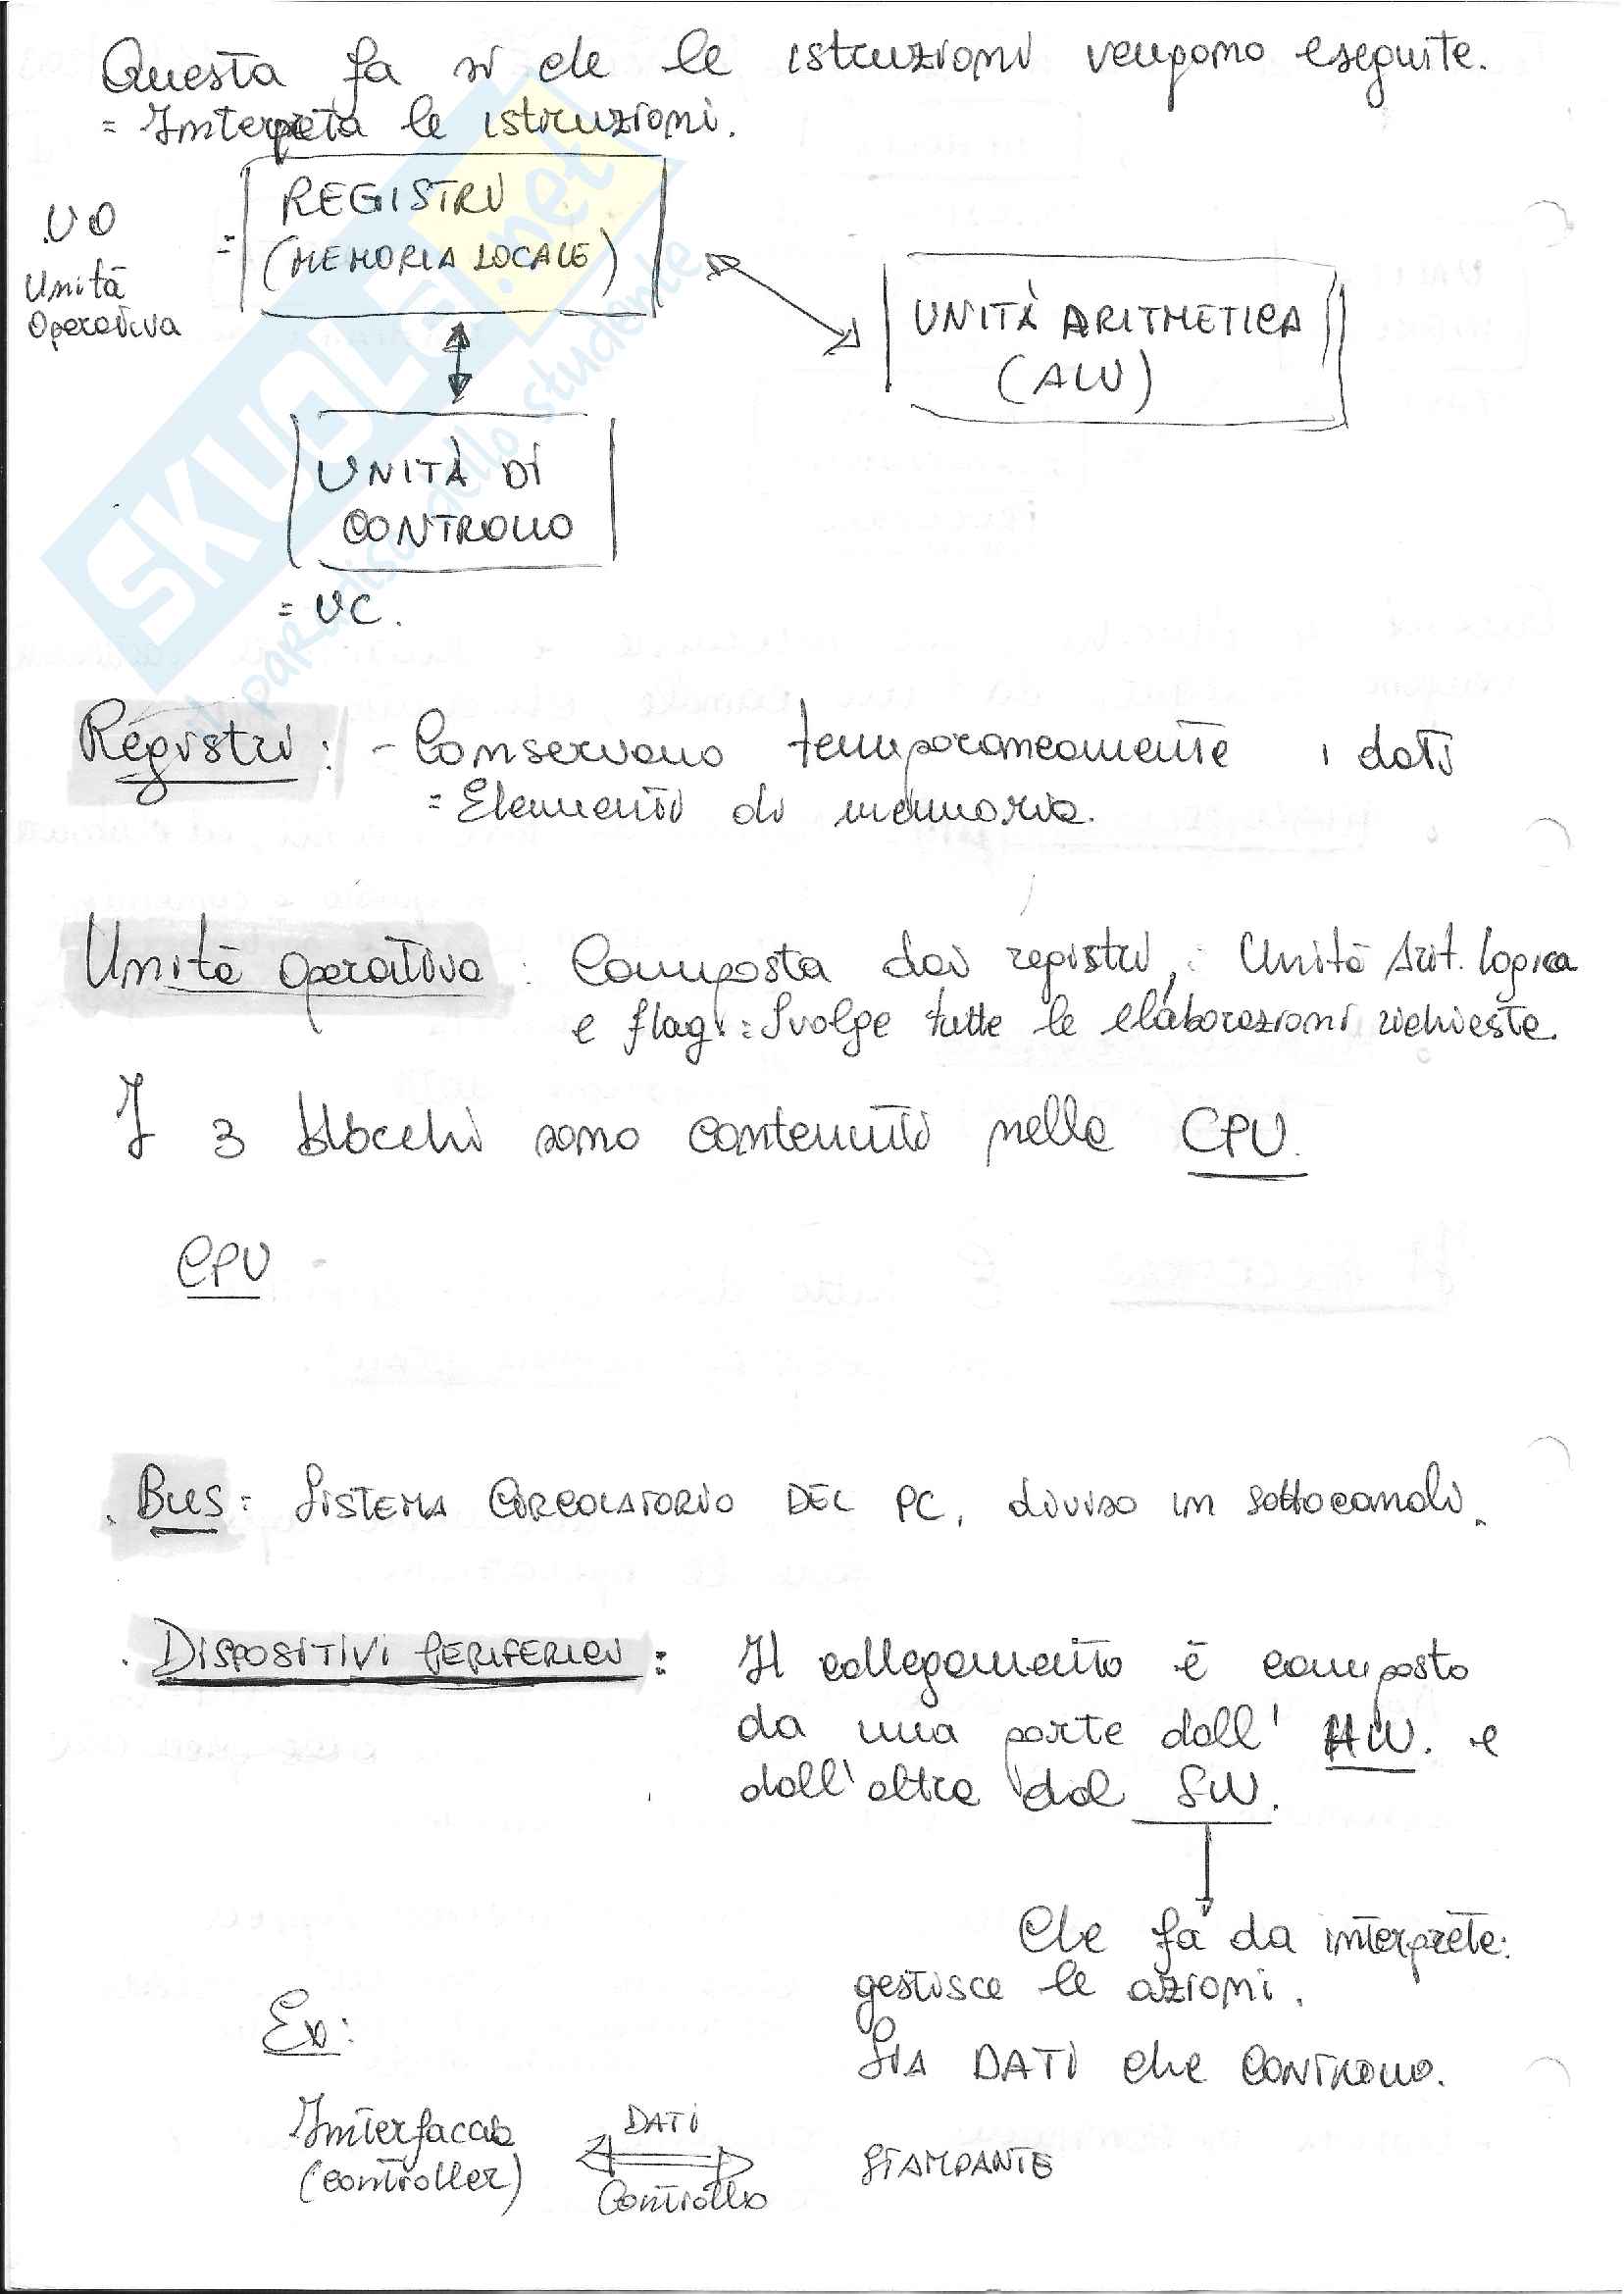 Questa fa sì che le istruzioni vengono eseguite.
= Interpreta le istruzioni.
UO
Unità
Operativa
=
REGISTRI
(MEMORIA LOCALE)
UNITÀ ARITMETICA
(ALU)
UNITÀ DI
CONTROLLO
= UC.
SKUOLA.net
il paradiso dello studente
Registri: - Conservano temporaneamente i dati
= Elementi di memoria.
Unità operativa: Composta dai registri, Unità Arit. logica
e flag: Svolge tutte le elaborazioni richieste.
I 3 blocchi sono contenuti nella CPU.
CPU
. Bus: SISTEMA CIRCOLATORIO DEL PC, diviso in sottocanali.
. DISPOSITIVI PERIFERICI: Il collegamento è composto
da una parte dall' HW. e
dall'altra dal SW.
Che fa da interprete:
gestisce le azioni.
SIA DATI che CONTROLLO.
Es:
Interfaccia
(controller)
DATI
Controllo
STAMPANTE